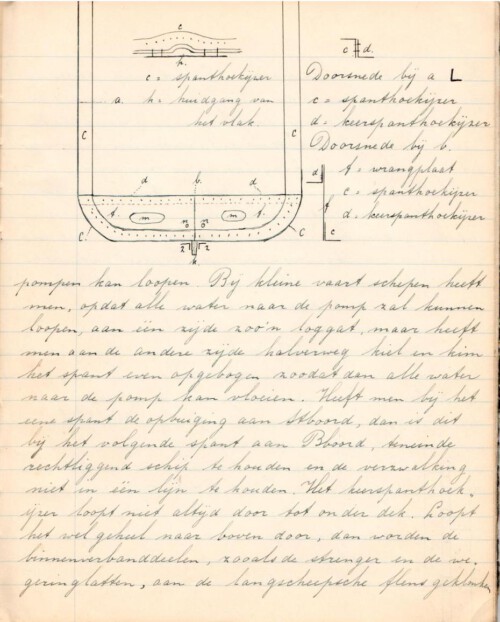 c
c d.
h.
c = spanthoekijzer
a. h = huidgang van
het vlak.
Doorsnede bij a L
c = spanthoekijzer
d = keerspanthoekijzer
Doorsnede bij b.
t = wrangplaat
c = spanthoekijzer
d = keerspanthoekijzer
c c
d
t
c
d b d
t m m t
c c
z z
k
pompen kan loopen. Bij kleine vaart schepen heeft
men, opdat alle water naar de pomp zal kunnen
loopen, aan één zijde zoo'n loggat, maar heeft
men aan de andere zijde halverweg kiel en kim
het spant even opgebogen zoodat dan alle water
naar de pomp kan vloeien. Heeft men bij het
eene spant de opbuiging aan Stboord, dan is dit
bij het volgende spant aan Bboord, teneinde
rechtliggend schip te houden en de verzwakking
niet in één lijn te houden. Het keerspanthoek-
ijzer loopt niet altijd door tot onder dek. Loopt
het wel geheel naar boven door, dan worden de
binnenverbanddeelen, zooals de stringer en de we-
geringlatten, aan de langscheepsche flens geklonken